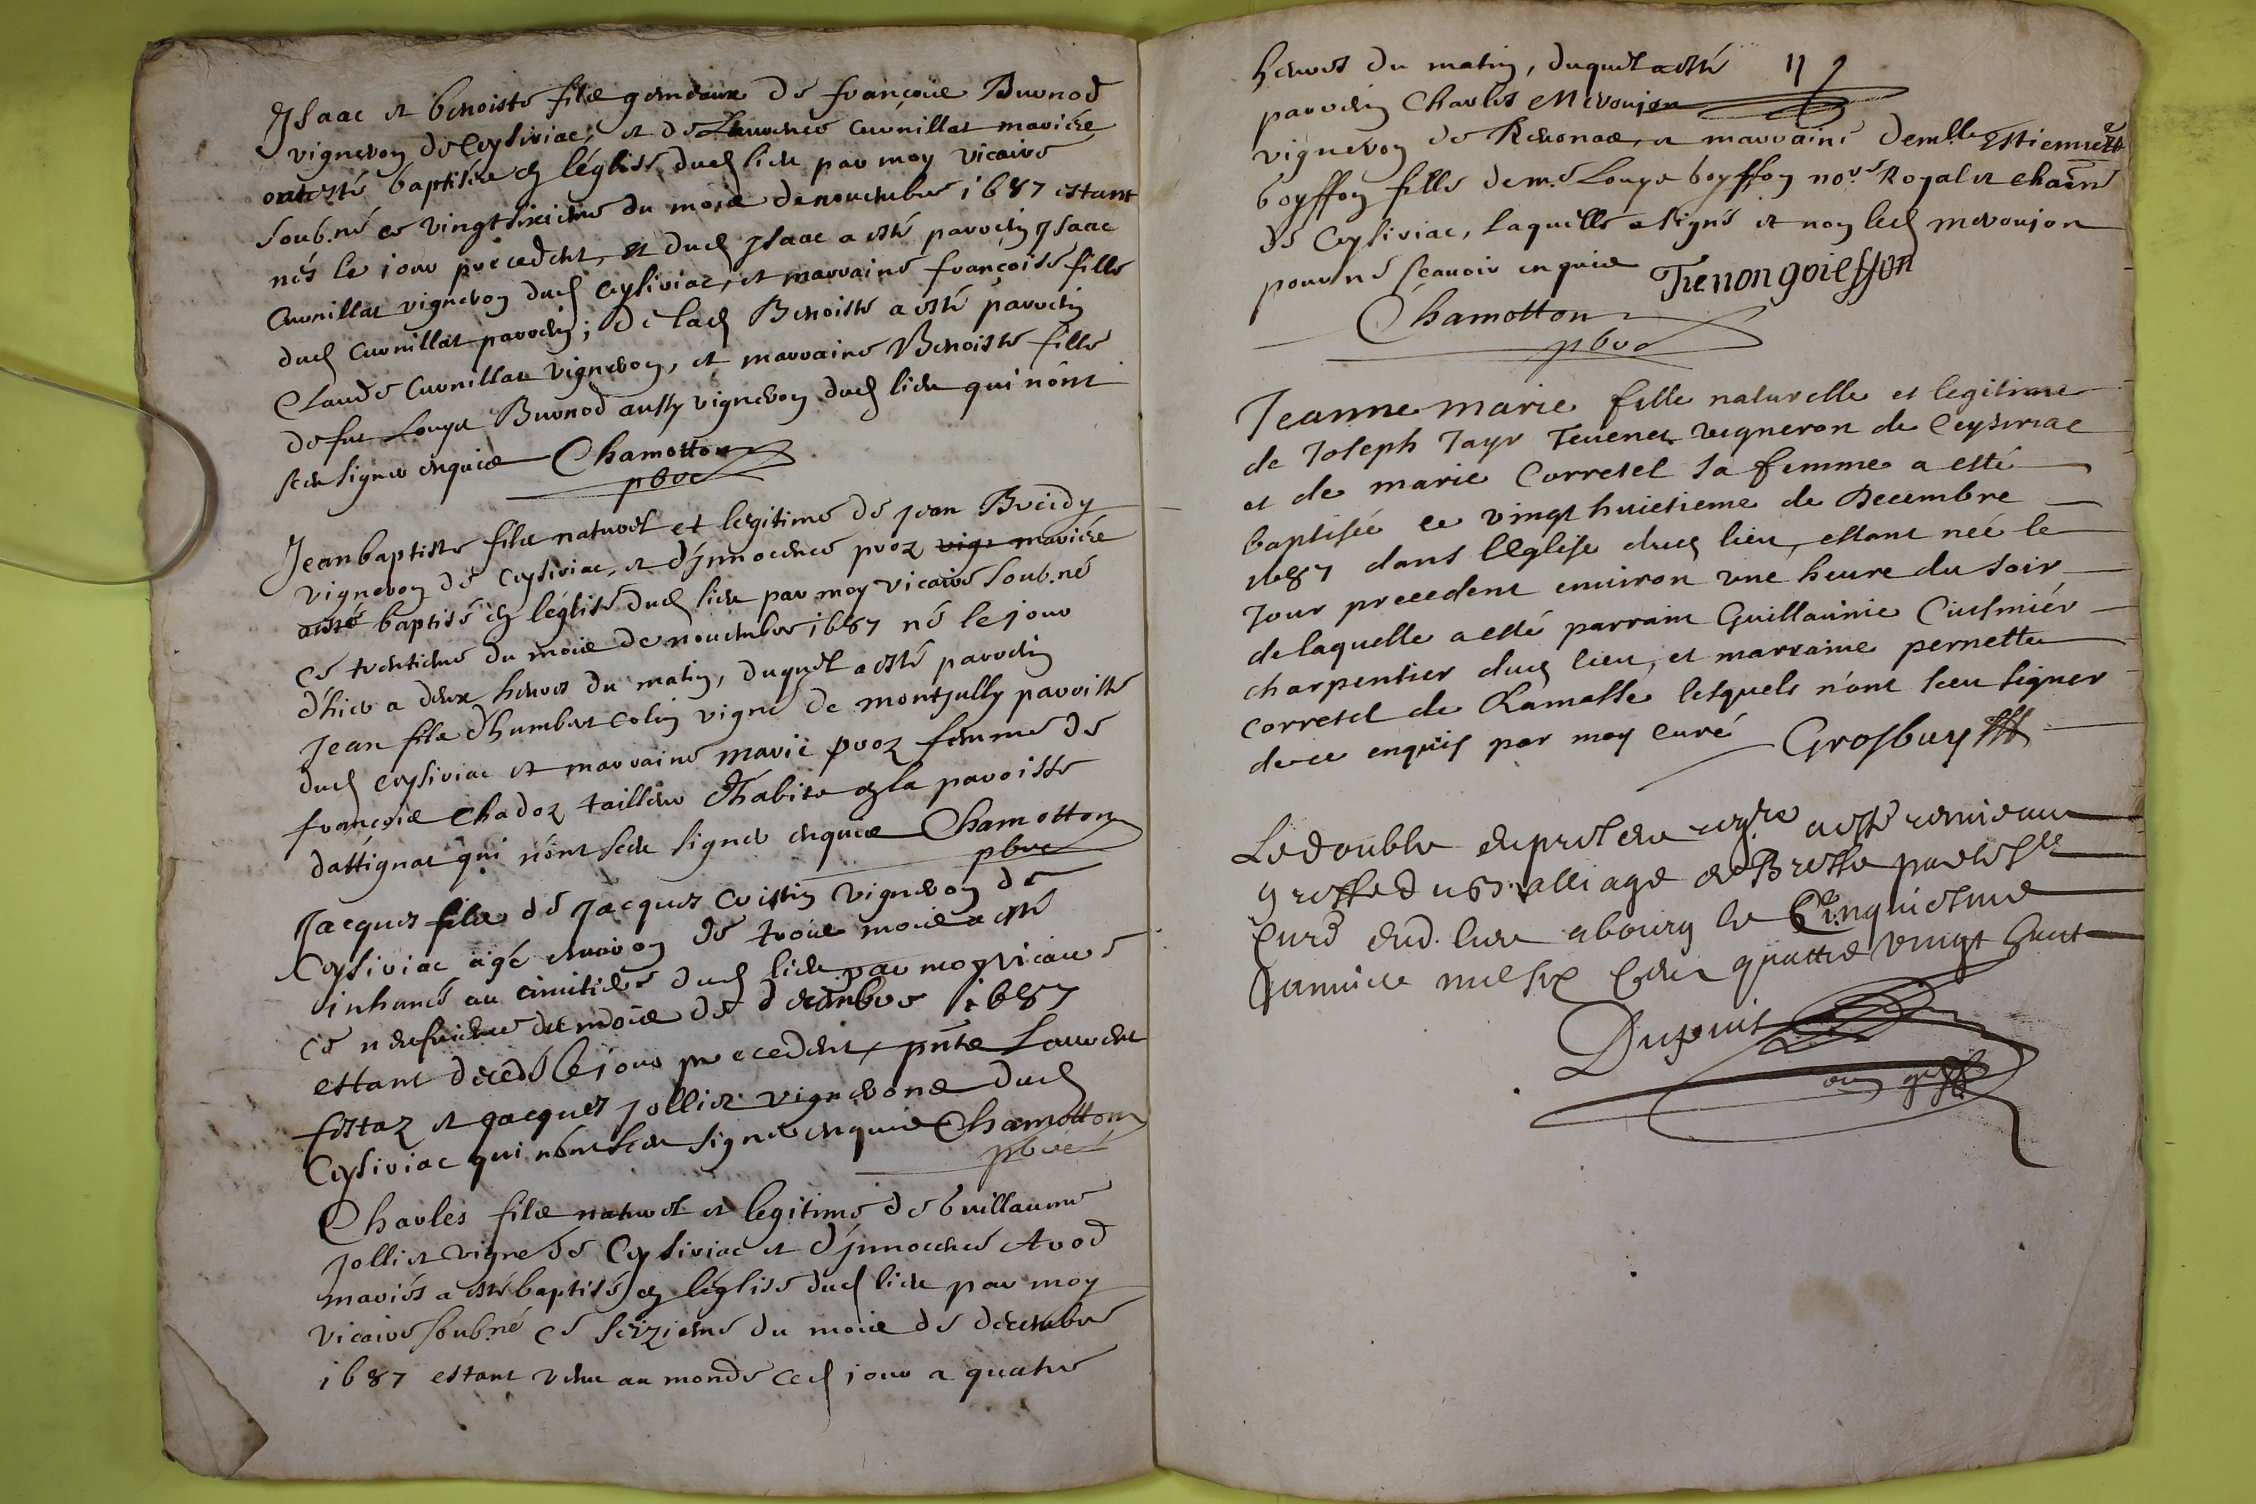 Isaac et benoiste filz gemeaux de françois Burnod
vigneron de Ceysiriac, et de Laurence Curnillat mariéz
ont esté baptiséz en léglise dud lieu par moy vicaire
soub.né ce vingt sixieme du mois de nouembre 1687 estant
nés le iour precedent, et dud Isaac a esté parrein Isaac
Curnillat vigneron dud Ceysiriac, et marraine françoise fille
dud Curnillat parrein; de lad Benoiste a esté parrein
Claude Curnillat vigneron, et marraine Benoiste fille
de feu Louys Burnod aussy vigneron dud lieu qui n'ont
sceu signer enquis Chamotton
pbre
Jean baptiste filz naturel et legitime de Jean Breidy
vigneron de Ceysiriac, et d'Innocence proz vig: mariéz
a esté baptisé en léglise dud lieu par moy vicaire soub.né
ce trentieme du mois de nouembre 1687 né le jour
d'hier a deux heures du matin, duquel a esté parrein
Jean filz d'humbert Colin vigne de montjully parroisse
dud Ceysiriac et marraine marie proz femme de
françois Chadoz tailleur d'habits en la paroisse
dattignat qui n'ont sceu signer enquis Chamotton
pbre
Jacques filz de Jacques Cvistin vigneron de
Ceysiriac agé enuiron de trois mois a esté
inhumé au cimitiere dud lieu par moy vicaire
ce neufuieme du mois de decembre 1687
estant decedé le jour precedent, pnts Laurent
festaz et Jacques Jolliet vignerons dud
Ceysiriac qui n'ont sceu signer enquis Chamotton
pbre
Charles filz naturel et legitime de Guillaume
Jolliet vigne de Ceysiriac et d'Innocence Avod
mariés a esté baptisé en léglise dud lieu par moy
vicaire soub.né ce seizieme du mois de decembre
1687 estant venu au monde ced iour a quatre
heures du matin, duquel a esté 11
parrein Charles Mevoujon
vigneron de Revonas, et marraine demlle Estiennette
boysson fille de me Louys boysson nore Royal et chaëne
de Ceysiriac, laquelle a signé et non led mevoujon
pour ne scauoir enquis Tienon goiesson
Chamotton
pbre
Jeanne marie fille naturelle et legitime
de Joseph Jayr Teuenet vigneron de Ceysiriac
et de marie Corretel sa femme a esté
baptisée ce vingt huictieme de Decembre
1687 dans l'Eglise dud lieu, estant neé le
Jour precedent enuiron une heure du soir
de laquelle a esté parrain Guillaume Cusmiér
charpentier dud lieu, et marraine pernette
Corretel de Ramasse lesquels n'ont sceu signer
de ce enquis par moy curé Grosbuy
Le double du prèsent regre a esté remis au
greffe du Balliage de Bresse par le Sr
Curé dud. lieu a bourg le Cinquiesme
Januier mil six Cent quattre vingt huict
Dupuis